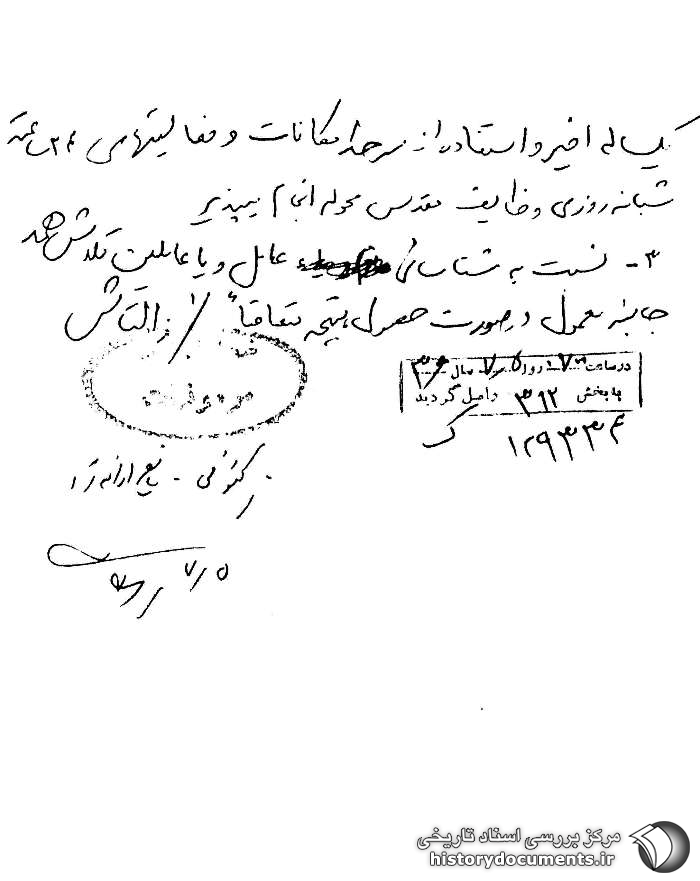 یکساله اخیر و استفاده از سرحد امکانات و فعالیتهای ۲۴ ساعته
شبانه روزی وظایف مقدس محوله انجام میپذیرد
۳- نسبت به شناسائی عامل و یا عاملین تلاش همه
جانبه معمول در صورت حصول نتیجه متعاقباً
در ساعت ۱۷ روز ۷/۵ سال ۳۶
به بخش ۳۹۲ واصل گردید
۱۲۹۳۳۴
۷/۵
مرکز بررسی اسناد تاریخی
historydocuments.ir